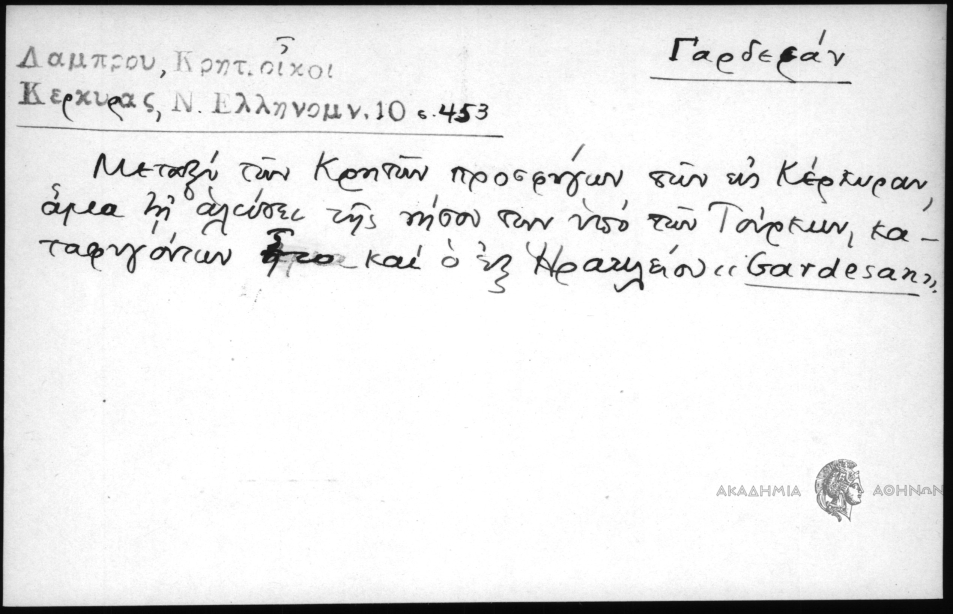 Γαρδεσάν
Λαμπρου, Κρητ. οἶκοι
Κερκυρας, Ν. Ελληνομν. 10 σ. 453
Μεταξύ τῶν Κρητῶν προσφύγων τῶν εἰς Κέρκυραν,
ἅμα τῇ ἁλώσει τῆς νήσου των ὑπό τῶν Τούρκων, κα-
ταφυγόντων καί ὁ ἐξ Ἡρακλείου «Gardesan».
ΑΚΑΔΗΜΙΑ ΑΘΗΝΩΝ